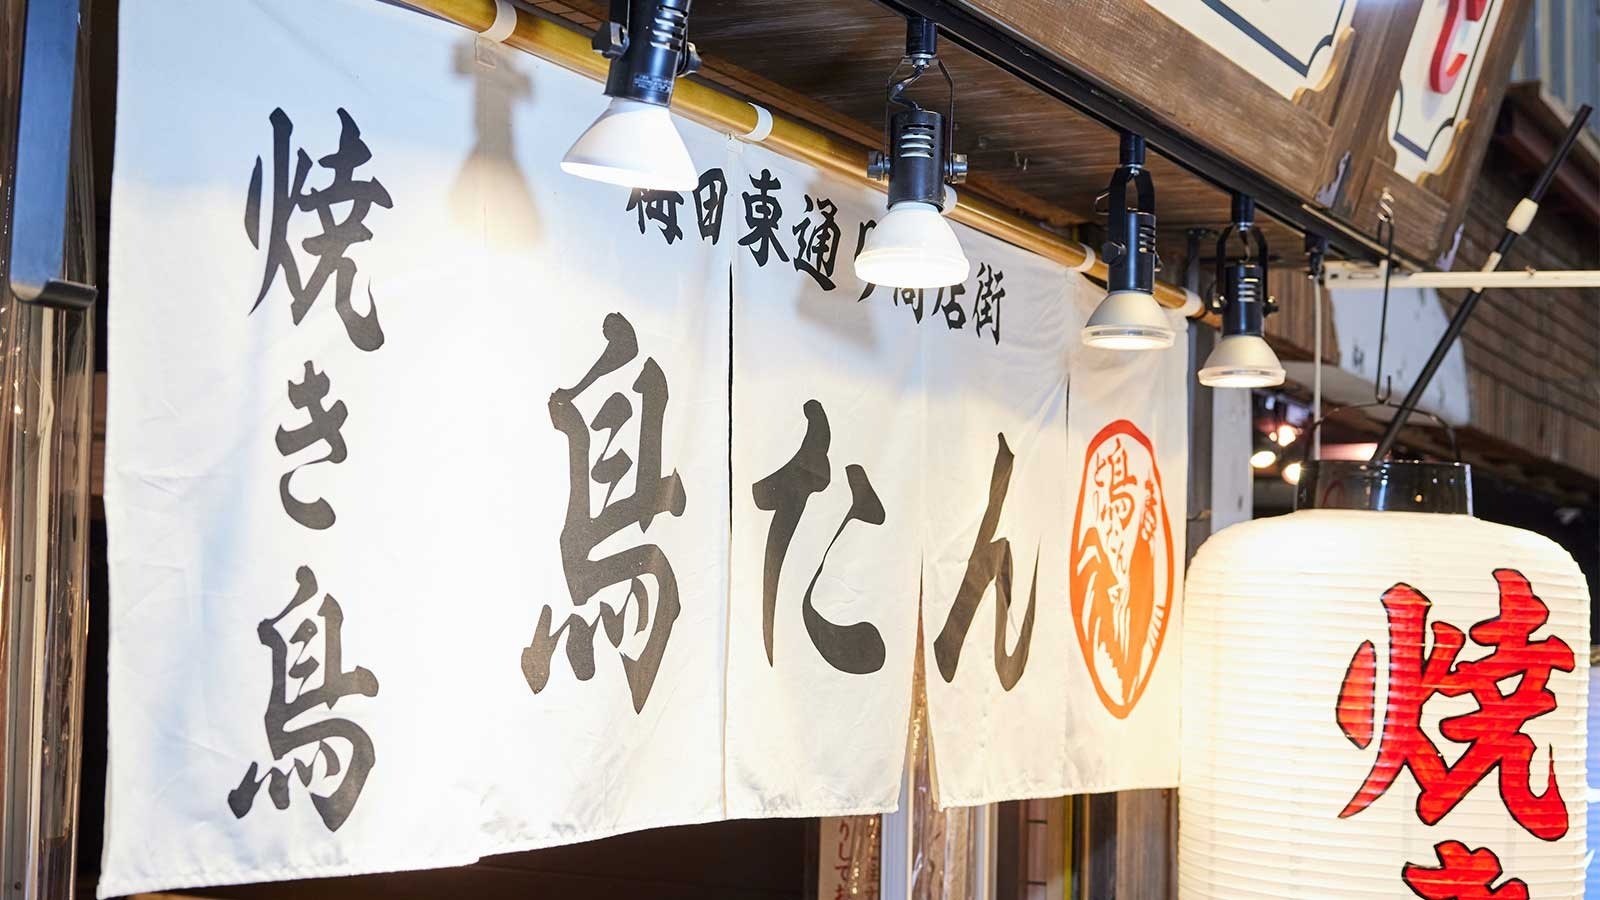 焼き鳥
梅田東通り商店街
鳥たん
鳥たん
焼き